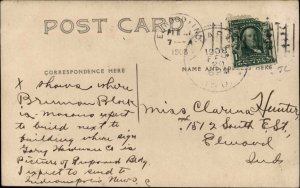 POST CARD
CORRESPONDENCE HERE
NAME AND ADDRESS HERE
1908
1908
X shows where
Brennan Block
is. Masons expect
to build next to
building where sign
Gary Hardware Co is
Picture of Proposed Bldg.
I expect to send to
Indianapolis News
Miss Clarina Hunter,
1512 South E St,
Elwood
Ind.